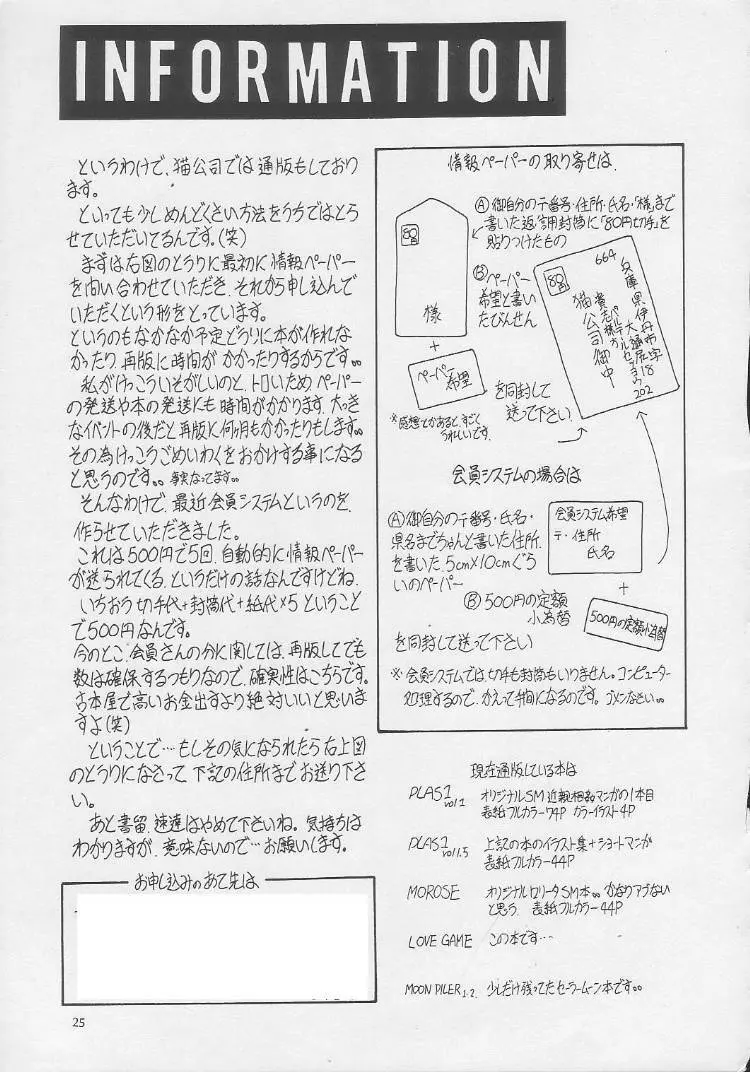 INFORMATION
というわけで、猫公司では通版もしており
ます。
といっても少しめんどくさい方法をうちではとら
せていただいてるんです。(笑)
まずは右図のとうりに最初に情報ペーパー
を問い合わせていただき、それから申し込んで
いただくという形をとっています。
というのもなかなか予定どうりに本が作れな
かったり、再版に時間がかかったりするからです。。
私がけっこういそがしいのと、トロいため、ペーパー
の発送や本の発送にも時間がかかります、大っき
なイベントの後だと再版に何ヶ月もかかったりもします。。
その為けっこうごめいわくをおかけする事になる
と思うのです。。事実なってます。。
そんなわけで、最近会員システムというのを、
作らせていただきました。
これは500円で5回、自動的に情報ペーパー
が送られてくる、というだけの話なんですけどね、
いちおう切手代+封筒代+紙代×5ということ
で500円なんです。
今のとこ、会員さんの分に関しては、再版してでも
数は確保するつもりなので、確実性はこちらです。
古本屋で高いお金出すより絶対いいと思いま
すよ(笑)
ということで…もしその気になられたら右上図
のとうりになさって下記の住所までお送り下さ
い。
あと書留、速達はやめて下さいね。気持ちは
わかりますが、意味ないので…お願いします。
お申し込みのあて先は
25
情報ペーパーの取り寄せは、
Ⓐ御自分の〒番号・住所・氏名・「様」まで
書いた返信用封筒に「80円切手」を
貼りつけたもの
80
様
Ⓑペーパー
希望と書い
たびんせん
+
ペーパー
希望
を同封して
送って下さい
※感想とかあると、すごく
うれしいです。
80
猫公司御中
会員システムの場合は
Ⓐ御自分の〒番号・氏名・
県名までちゃんと書いた住所、
を書いた5cm×10cmぐら
いのペーパー
会員システム希望
〒・住所
氏名
+
Ⓑ500円の定額
小為替
500円の定額小為替
を同封して送って下さい
※会員システムでは、切手も封筒もいりません。コンピューター
処理するので、かえって手間になるのです。ゴメンなさい。。
現在通版している本は
LOVE GAME この本です…
MOON PILER 1.2. 少しだけ残ってたセーラームーン本です。。